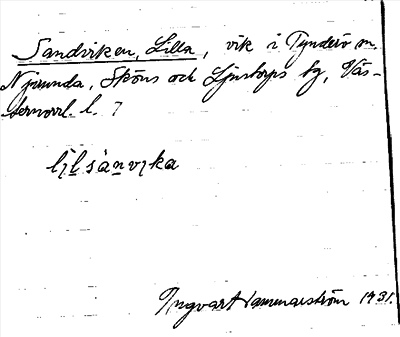 Sandviken, Lilla, vik i Tynderö m.
Njurunda, Sköns och Ljustorps tg, Väs-
ternorrl. l. 7
lilsanvika
Ingvart Hammarström 1931.